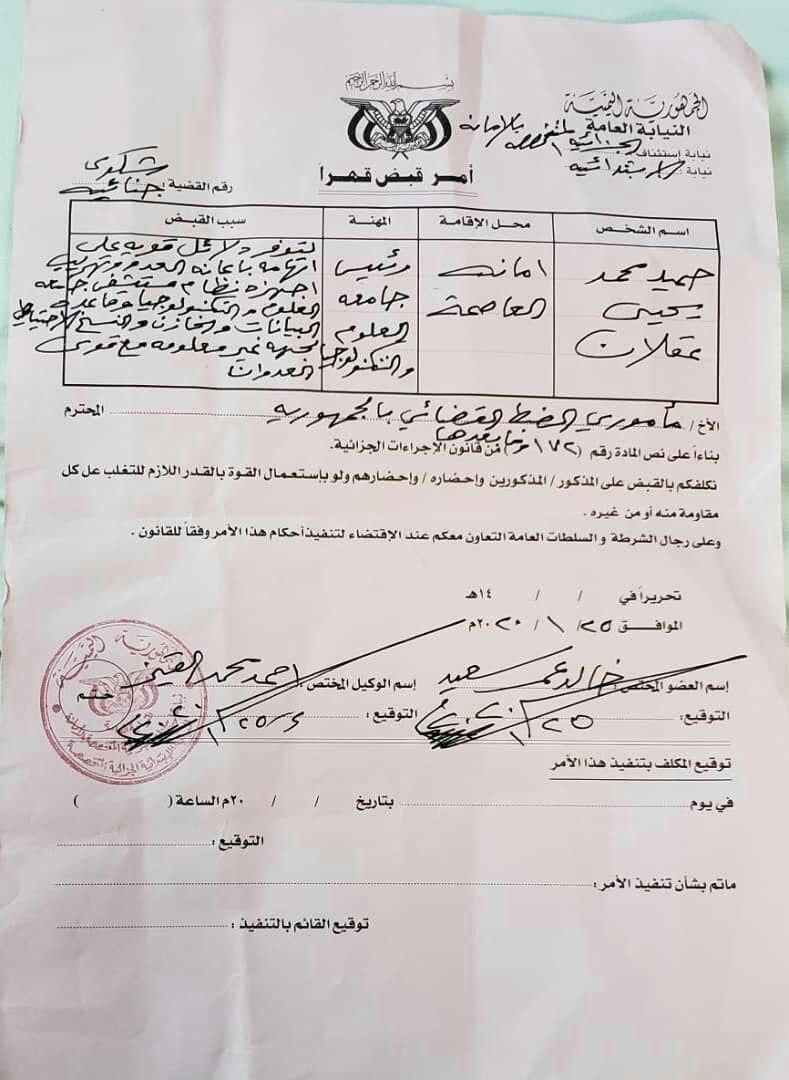 بسم الله الرحمن الرحيم
الجمهورية اليمنية
النيابة العامة
نيابة إستئناف الجزائية المتخصصة بالأمانة
نيابة الابتدائية
أمر قبض قهراً
رقم القضية: شكوى جنائية
اسم الشخص المهنة محل الإقامة سبب القبض
حميد محمد
يحيى
عقلان
امانة
العاصمة
رئيس
جامعه
العلوم
والتكنولوجيا
لتوفر دلائل قويه على
اتهامه باعانه العدو وتهريب
اجهزه نظام مستشفى جامعه
العلوم والتكنولوجيا وقاعدة
البيانات والمخازن والنسخ الاحتياطي
لجهه غير معلومه مع قوى
العدوان
الأخ / مأموري الضبط القضائي بالجمهوريه المحترم
بناءاً على نص المادة رقم (١٧٢ وما بعدها) من قانون الإجراءات الجزائية.
نكلفكم بالقبض على المذكور / المذكورين وإحضاره / وإحضارهم ولو بإستعمال القوة بالقدر اللازم للتغلب عل كل
مقاومة منه أو من غيره .
وعلى رجال الشرطة و السلطات العامة التعاون معكم عند الإقتضاء لتنفيذ أحكام هذا الأمر وفقاً للقانون .
تحريراً في / / ١٤هـ
الموافق ٢٥/ ١ / ٢٠٢٠م
إسم العضو المختص: خالد عمر سعيد إسم الوكيل المختص: احمد محمد ختم
التوقيع: التوقيع:
توقيع المكلف بتنفيذ هذا الأمر
في يوم بتاريخ / / ٢٠م الساعة ( )
التوقيع :
ماتم بشأن تنفيذ الأمر :
توقيع القائم بالتنفيذ :